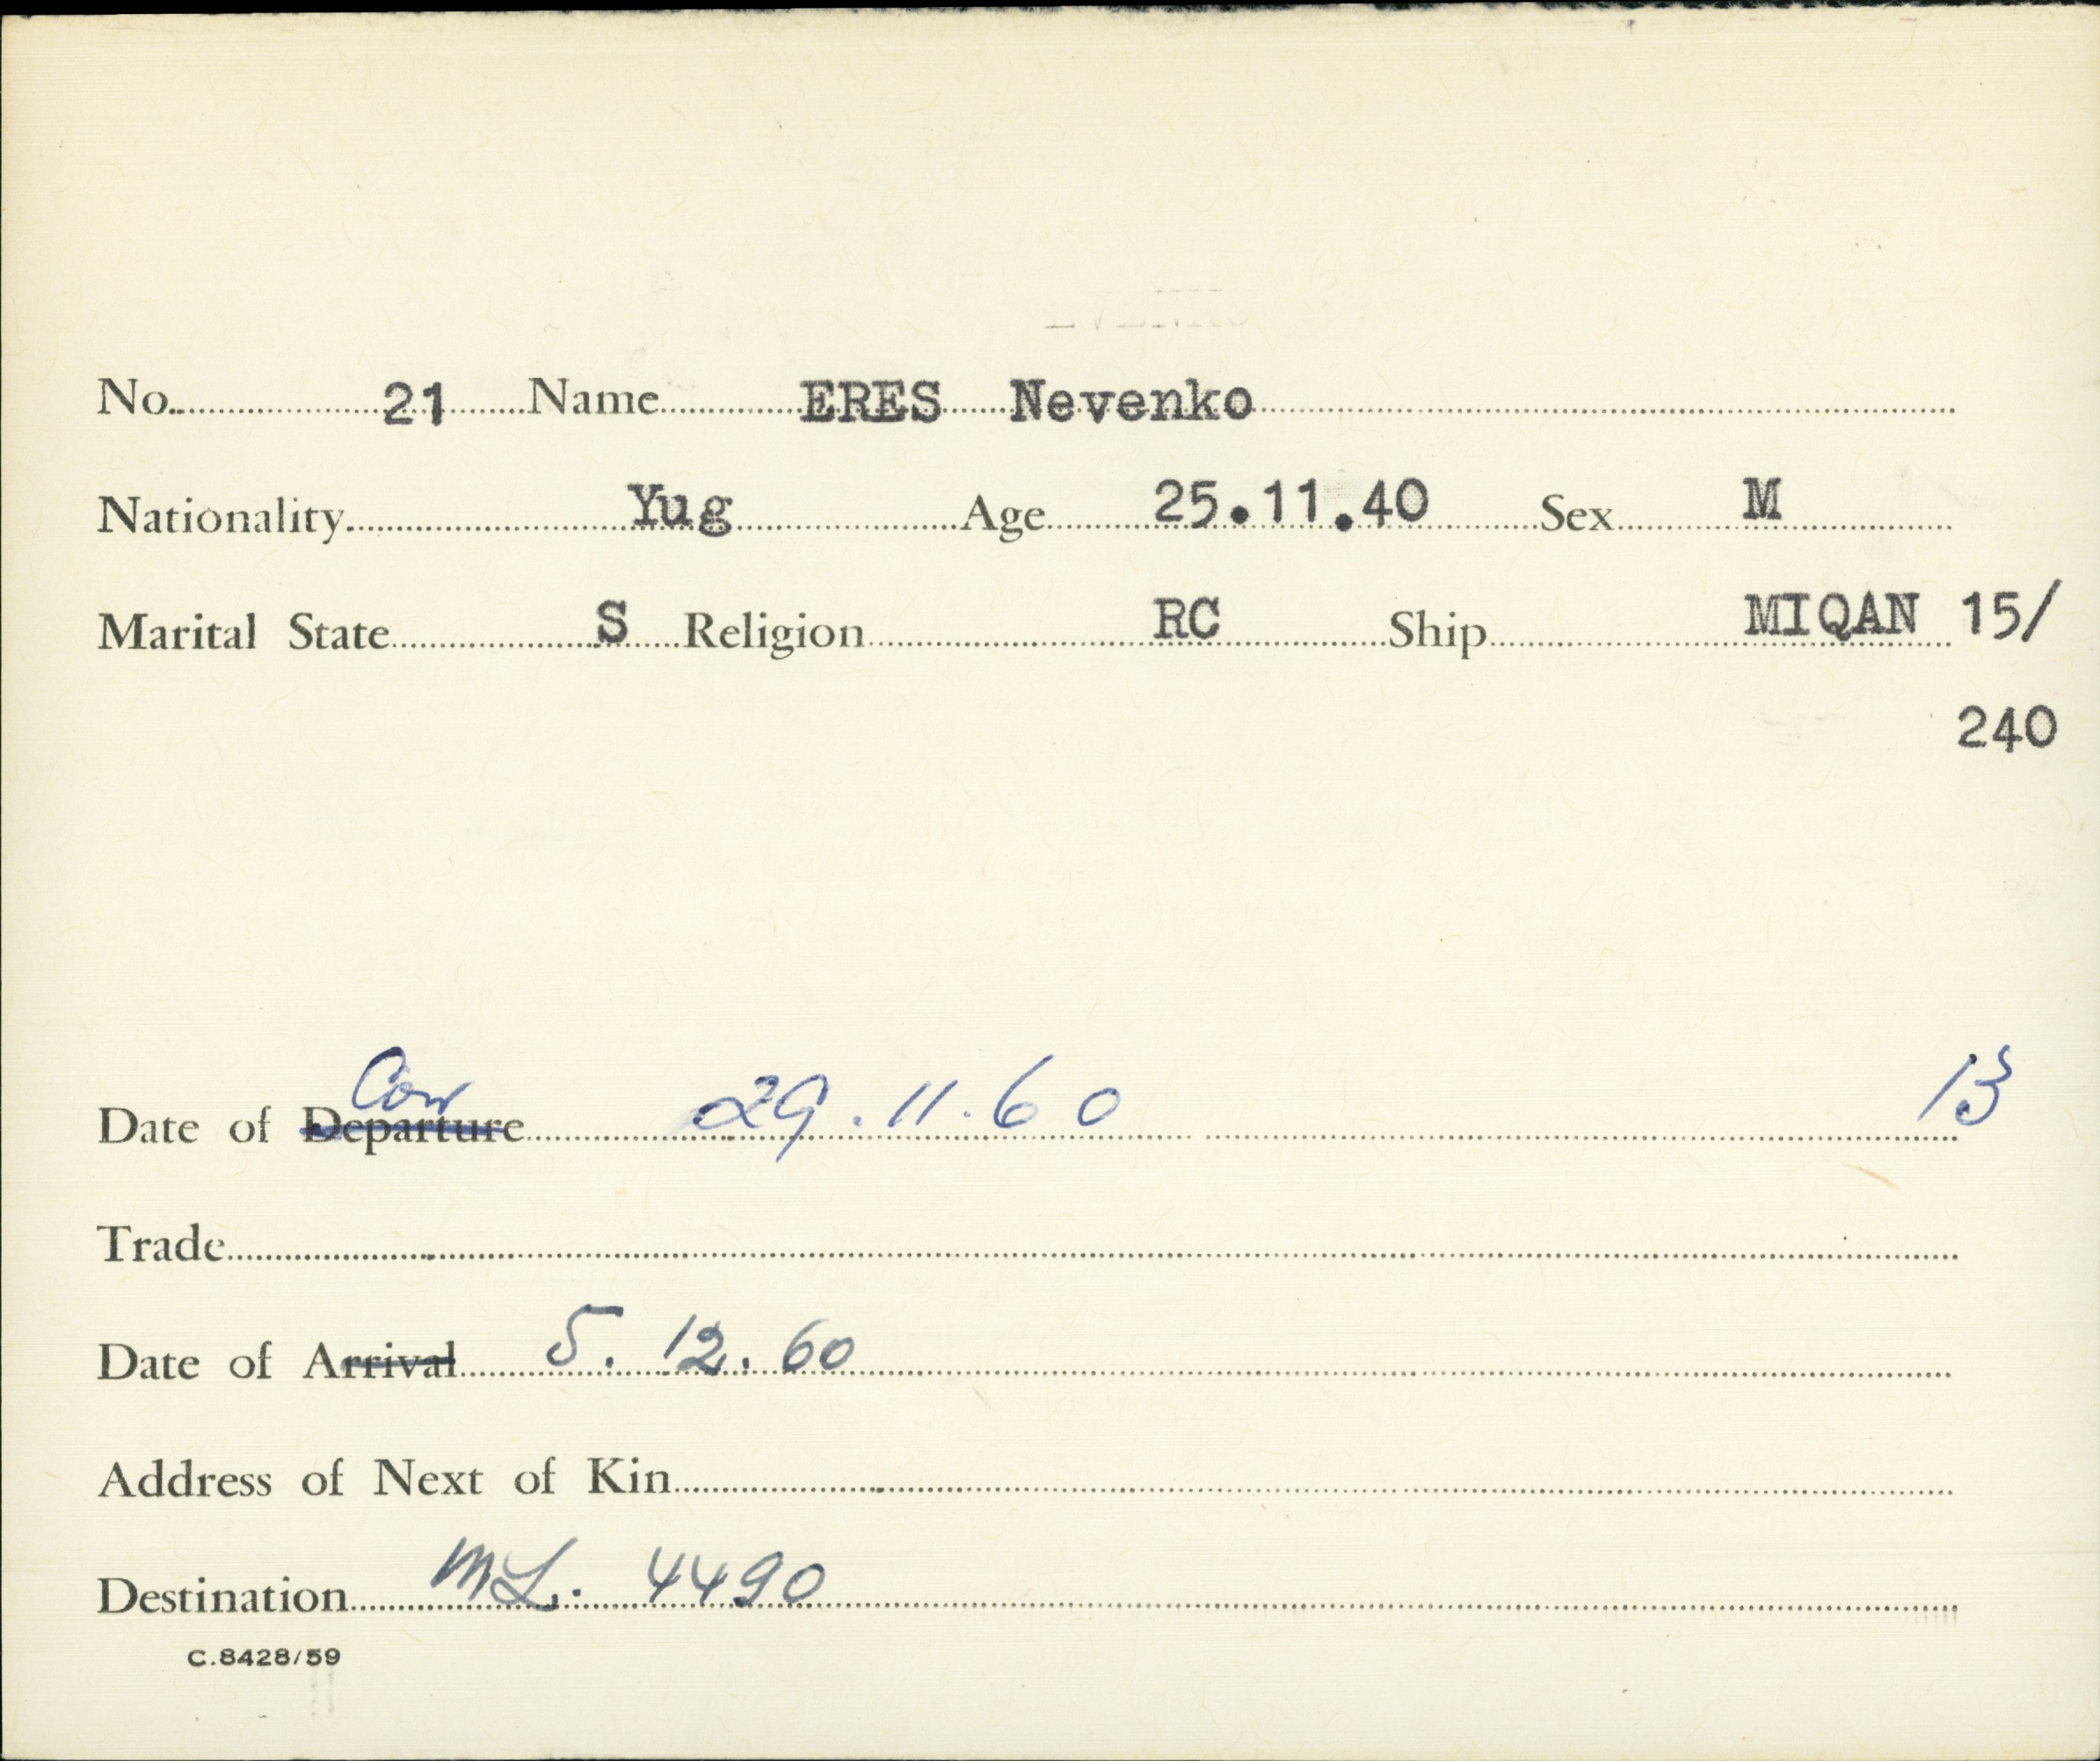 No. 21 Name ERES Nevenko
Nationality Yug Age 25.11.40 Sex M
Marital State S Religion RC Ship MIQAN 15/
240
Cow
Date of Departure 29.11.60 13
Trade
Date of Arrival 5.12.60
Address of Next of Kin
Destination ML. 4490
C.8428/59